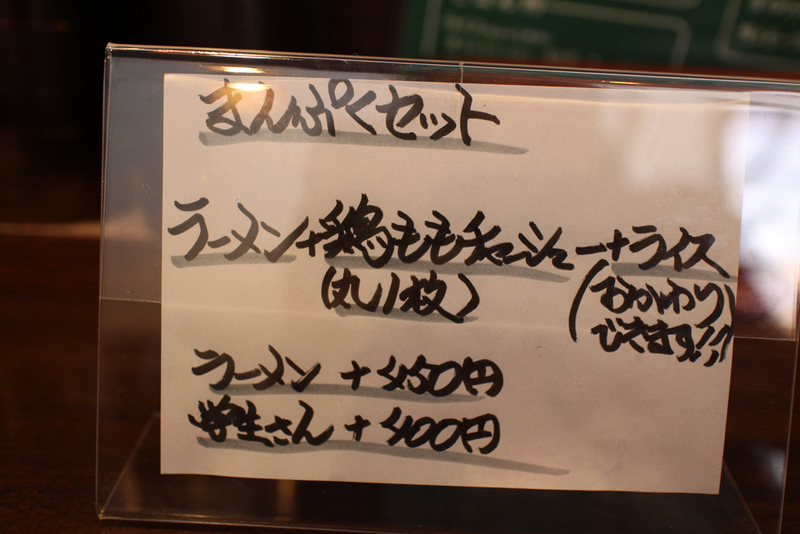 まんぷくセット
ラーメン+鶏ももチャーシュー+ライス
(丸1枚)
(おかわり
できます!!)
ラーメン +450円
学生さん +400円